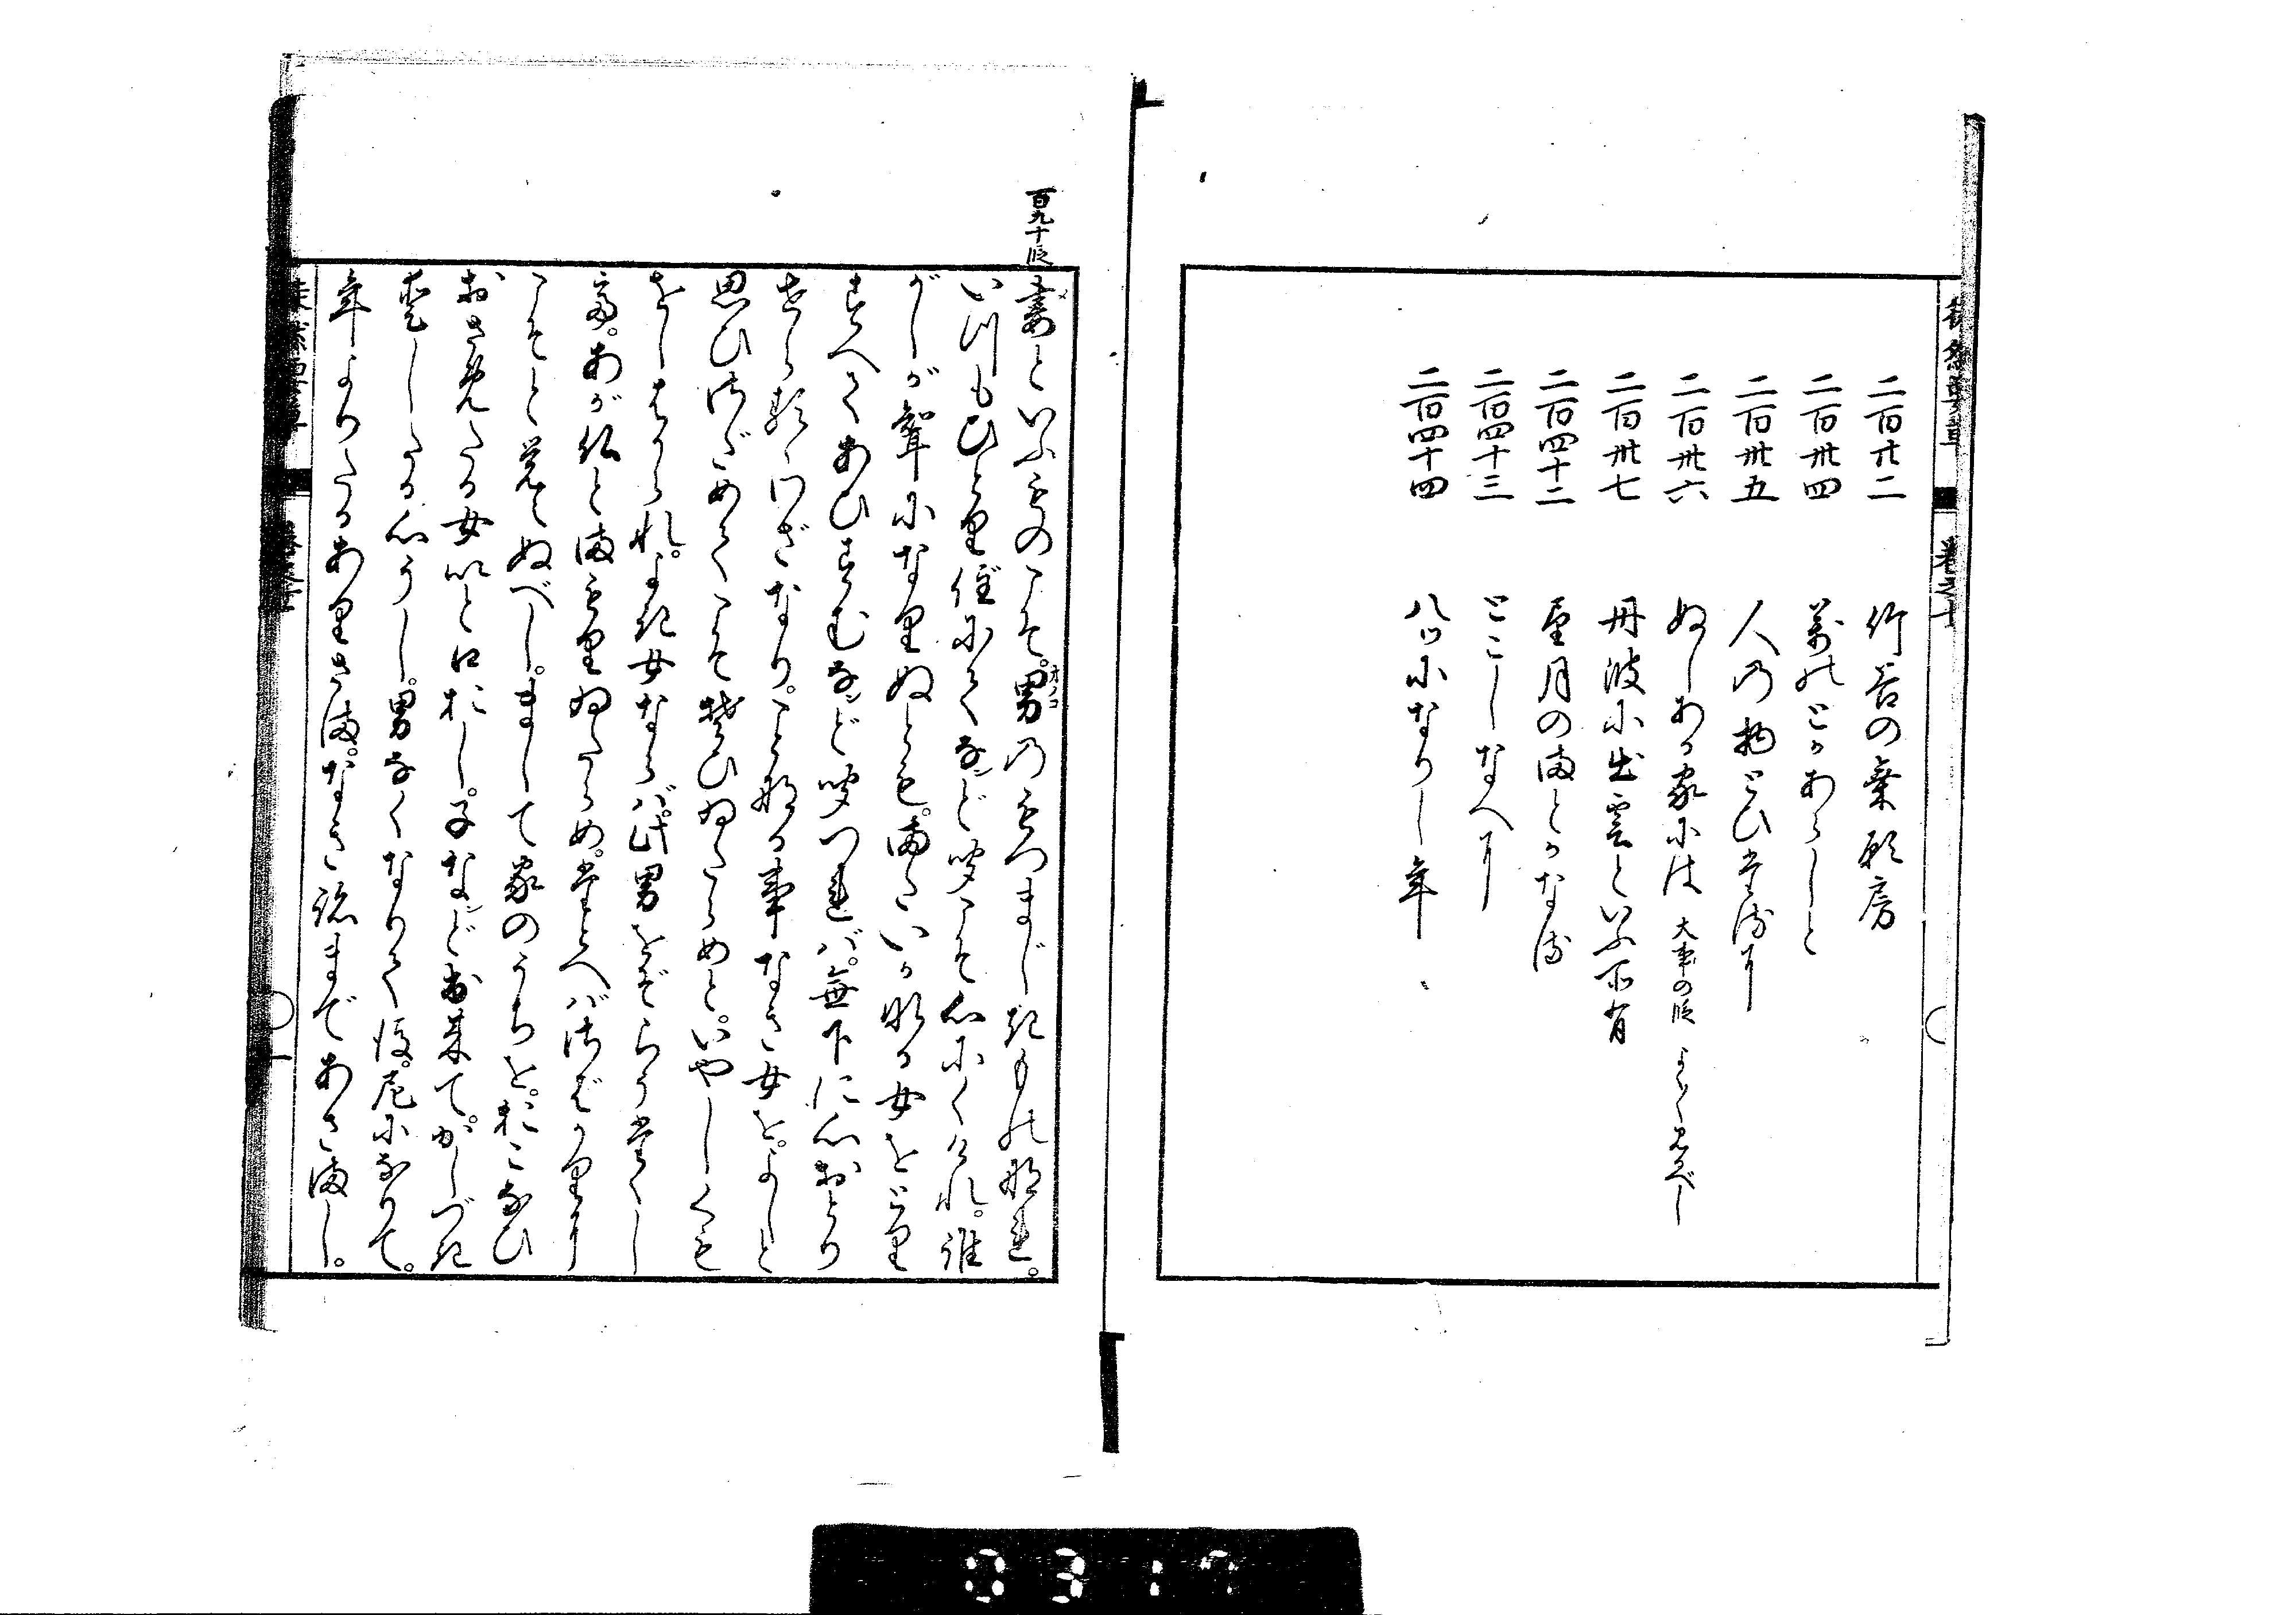 徒然要草　巻之十
二百廿二　竹谷の乗願房
二百卅四　萬のとかあらしと
二百卅五　人の物とひたるに
二百卅六　ぬしある家には　大事の段　よく〱見べし
二百卅七　丹波に出雲といふ所有
二百四十二　望月のまとかなる
二百四十三　とこしなへに
二百四十四　八つになりし年
百九十段
妻といふものこそ。男のもつまじきものなれ。
いつもひとり住にてなど聞こそ心にくけれ。誰
がしが聟になりぬとも。またいかなる女をとり
すへてあひすむなど聞つれば。無下に心おとり
せらるゝわざなり。ことなる事なき女を。よしと
思ひさだめてこそ そひゐたらめと。いやしくも
をしはかられ。よき女ならば。此男をぞらうたくし
て。あが仏とまもりゐたらめ。たとへばさばかりに
こそと覚えぬべし。まして家のうちを。おこなひ
おさめたる女いと口おし。子など出来て。かしづき
愛したる心うし。男なくなりて後。尼になりて。
年よりたるありさま。なき跡まであさまし。